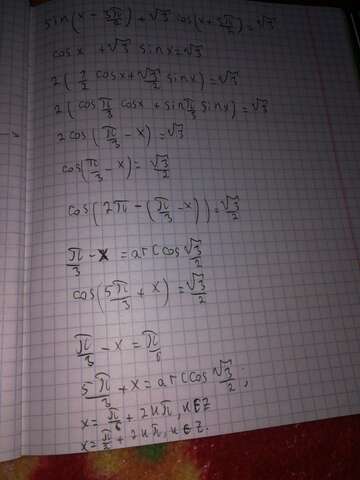 sin(x - 3π/2) + √3 cos(x + 3π/2) = √3
cos x + √3 sin x = √3
2(1/2 cos x + √3/2 sin x) = √3
2(cos π/3 cos x + sin π/3 sin x) = √3
2 cos(π/3 - x) = √3
cos(π/3 - x) = √3/2
cos(2π - (π/3 - x)) = √3/2
π/3 - x = arccos √3/2
cos(5π/3 + x) = √3/2
π/3 - x = π/6
5π/3 + x = arccos √3/2;
x = π/6 + 2πn, n ∈ Z
x = π/2 + 2πn, n ∈ Z.